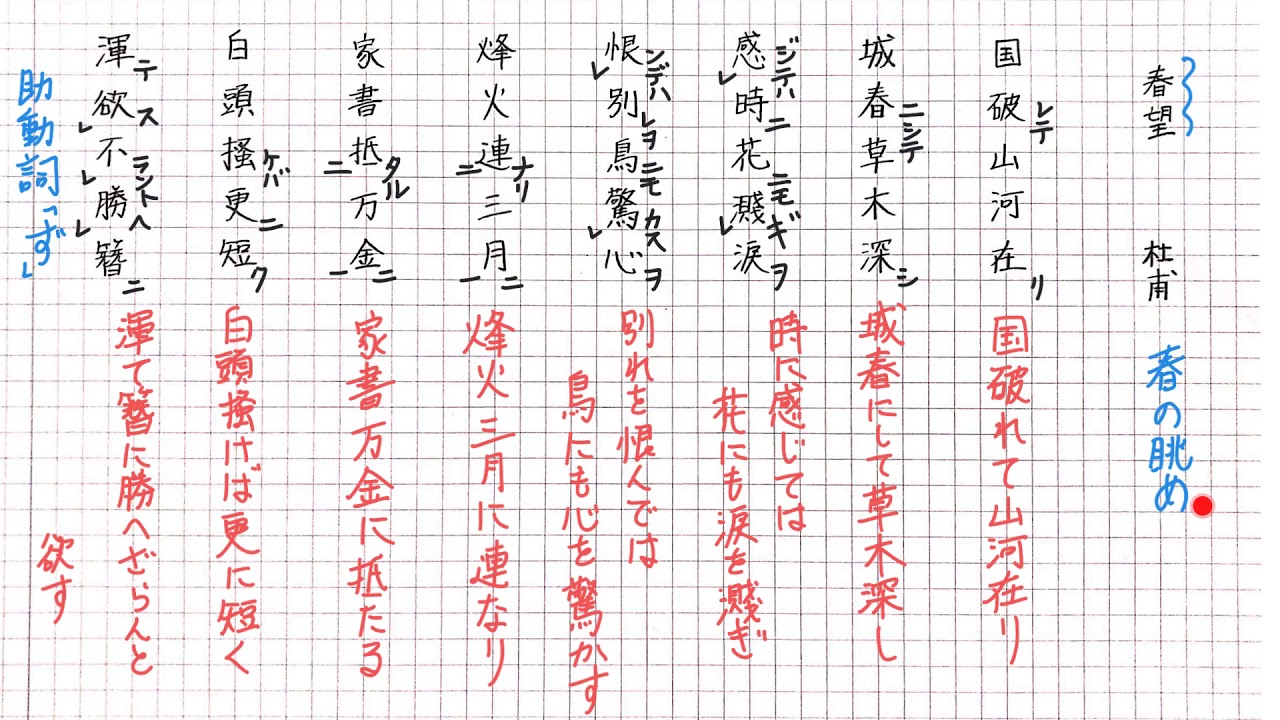 春望 杜甫 春の眺め
国破レテ山河在リ 国破れて山河在り
城春ニシテ草木深シ 城春にして草木深し
感ジテハレ時ニ花ニモ濺ギレ涙ヲ 時に感じては
花にも涙を濺ぎ
恨ンデハレ別レヲ鳥ニモ驚カスレ心ヲ 別れを恨んでは
鳥にも心を驚かす
烽火連ナリ二三月ニ一 烽火三月に連なり
家書抵タル二万金ニ一 家書万金に抵たる
白頭掻ケバ更ニ短ク 白頭掻けば更に短く
渾テ欲スレ不ラントレ勝ヘレ簪ニ 渾て簪に勝へざらんと
欲す
助動詞「ず」